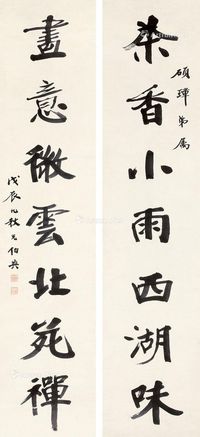 碩琿弟屬
茶香小雨西湖味
畫意微雲北苑禪
戊辰九秋兄伯英